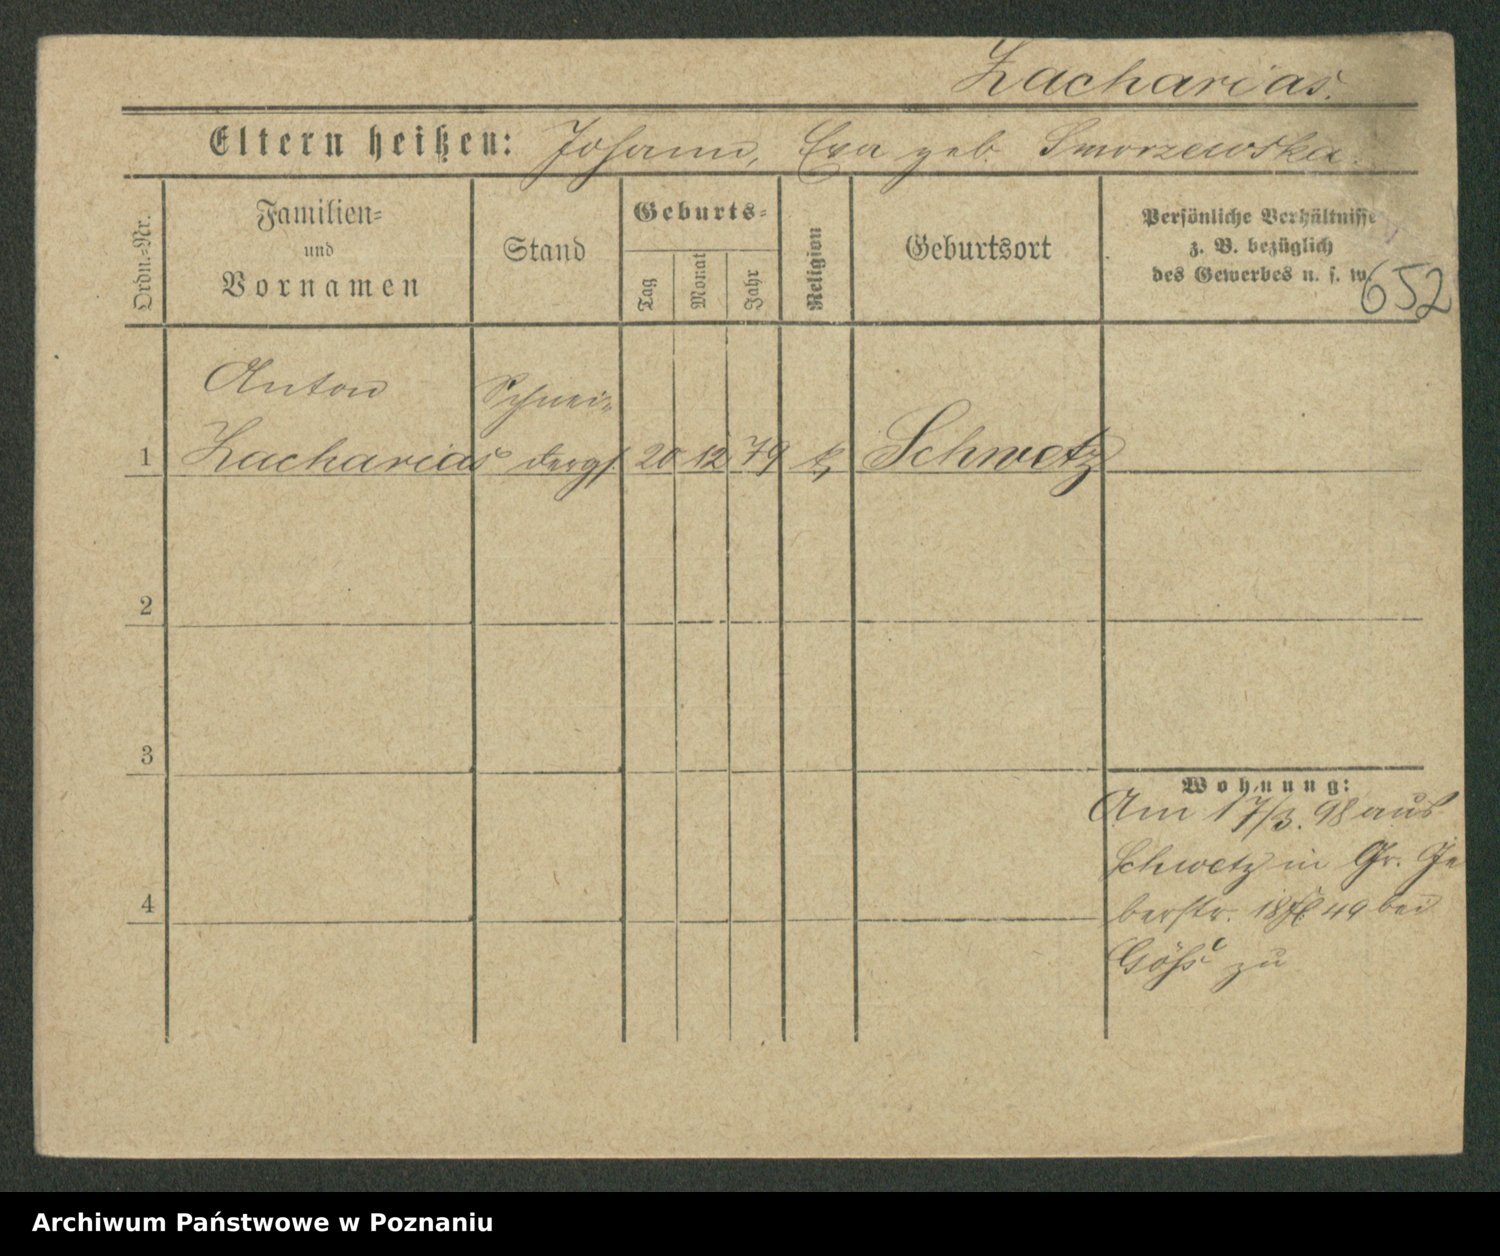 Zacharias.
Eltern heißen: Johann, Eva geb. Smorzewska.
Ordn.-Nr.
Familien-
und
Vornamen
Stand
Geburts-
Tag
Monat
Jahr
Religion
Geburtsort
Persönliche Verhältnisse
z. B. bezüglich
des Gewerbes u. s. w.
652
Anton Schnei-
1 Zacharias derges. 20 12 79 k Schwetz
2
3
4
Wohnung:
Am 17/3. 98 aus
Schwetz in Gr. Ge
berstr. 18 49 bei
zu
Archiwum Państwowe w Poznaniu